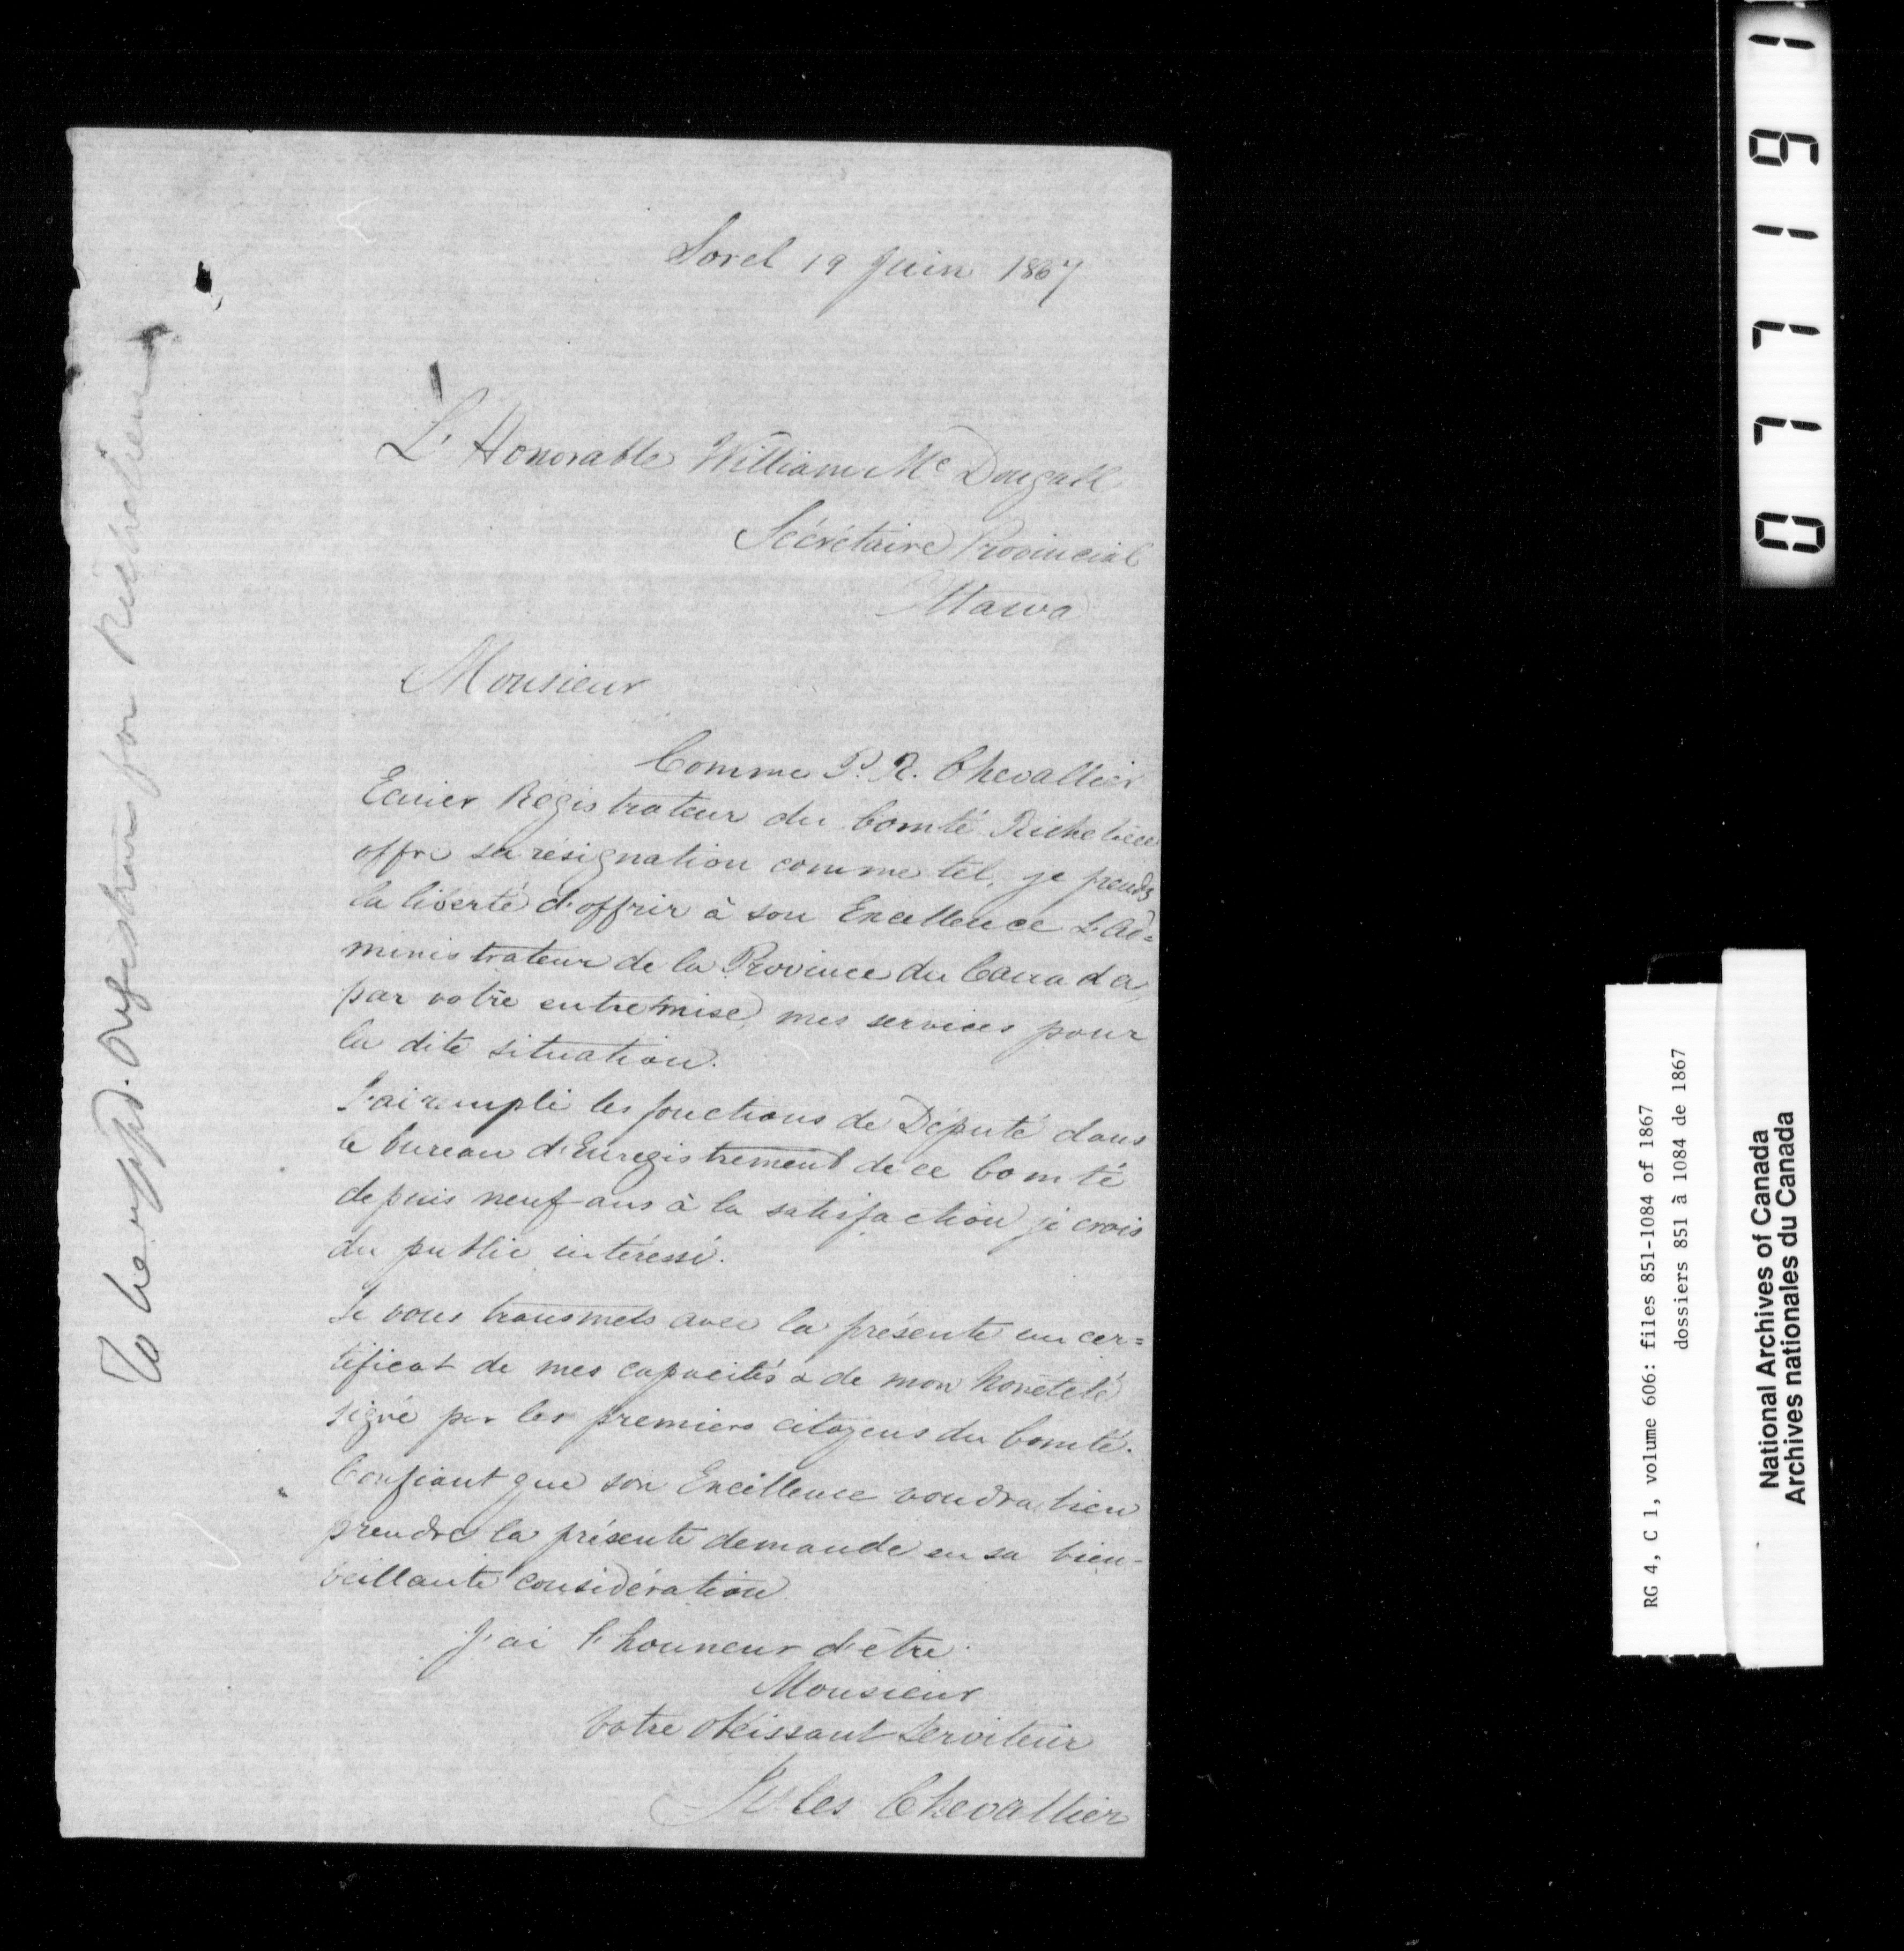 Sorel 19 Juin 1867
L'Honorable William Mc Dougall
Sécrétaire Provincial
Ottawa
Monsieur
Comme P. R. Chevallier
Ecuier Régistrateur du Comté Richelieu
offre sa résignation comme tel, je prends
la liberté d'offrir à son Excellence L'Ad=
ministrateur de la Province du Canada,
par votre entremise, mes services pour
la dite situation.
J'ai rempli les fonctions de Député dans
le bureau d'Enregistrement de ce Comté
depuis neuf ans à la satisfaction je crois
du public intéressé.
Je vous transmets avec la présente un cer=
tificat de mes capacités & de mon honêteté
signé par les premiers citoyens du Comté.
Confiant que son Excellence voudra bien
prendre la présente demande en sa bien-
veillante considération
J'ai l'honneur d'être
Monsieur
Votre obéissant Serviteur
Jules Chevallier
To be appd. Registrar for Richelieu
077191
RG 4, C 1, volume 606: files 851-1084 of 1867
dossiers 851 à 1084 de 1867
National Archives of Canada
Archives nationales du Canada